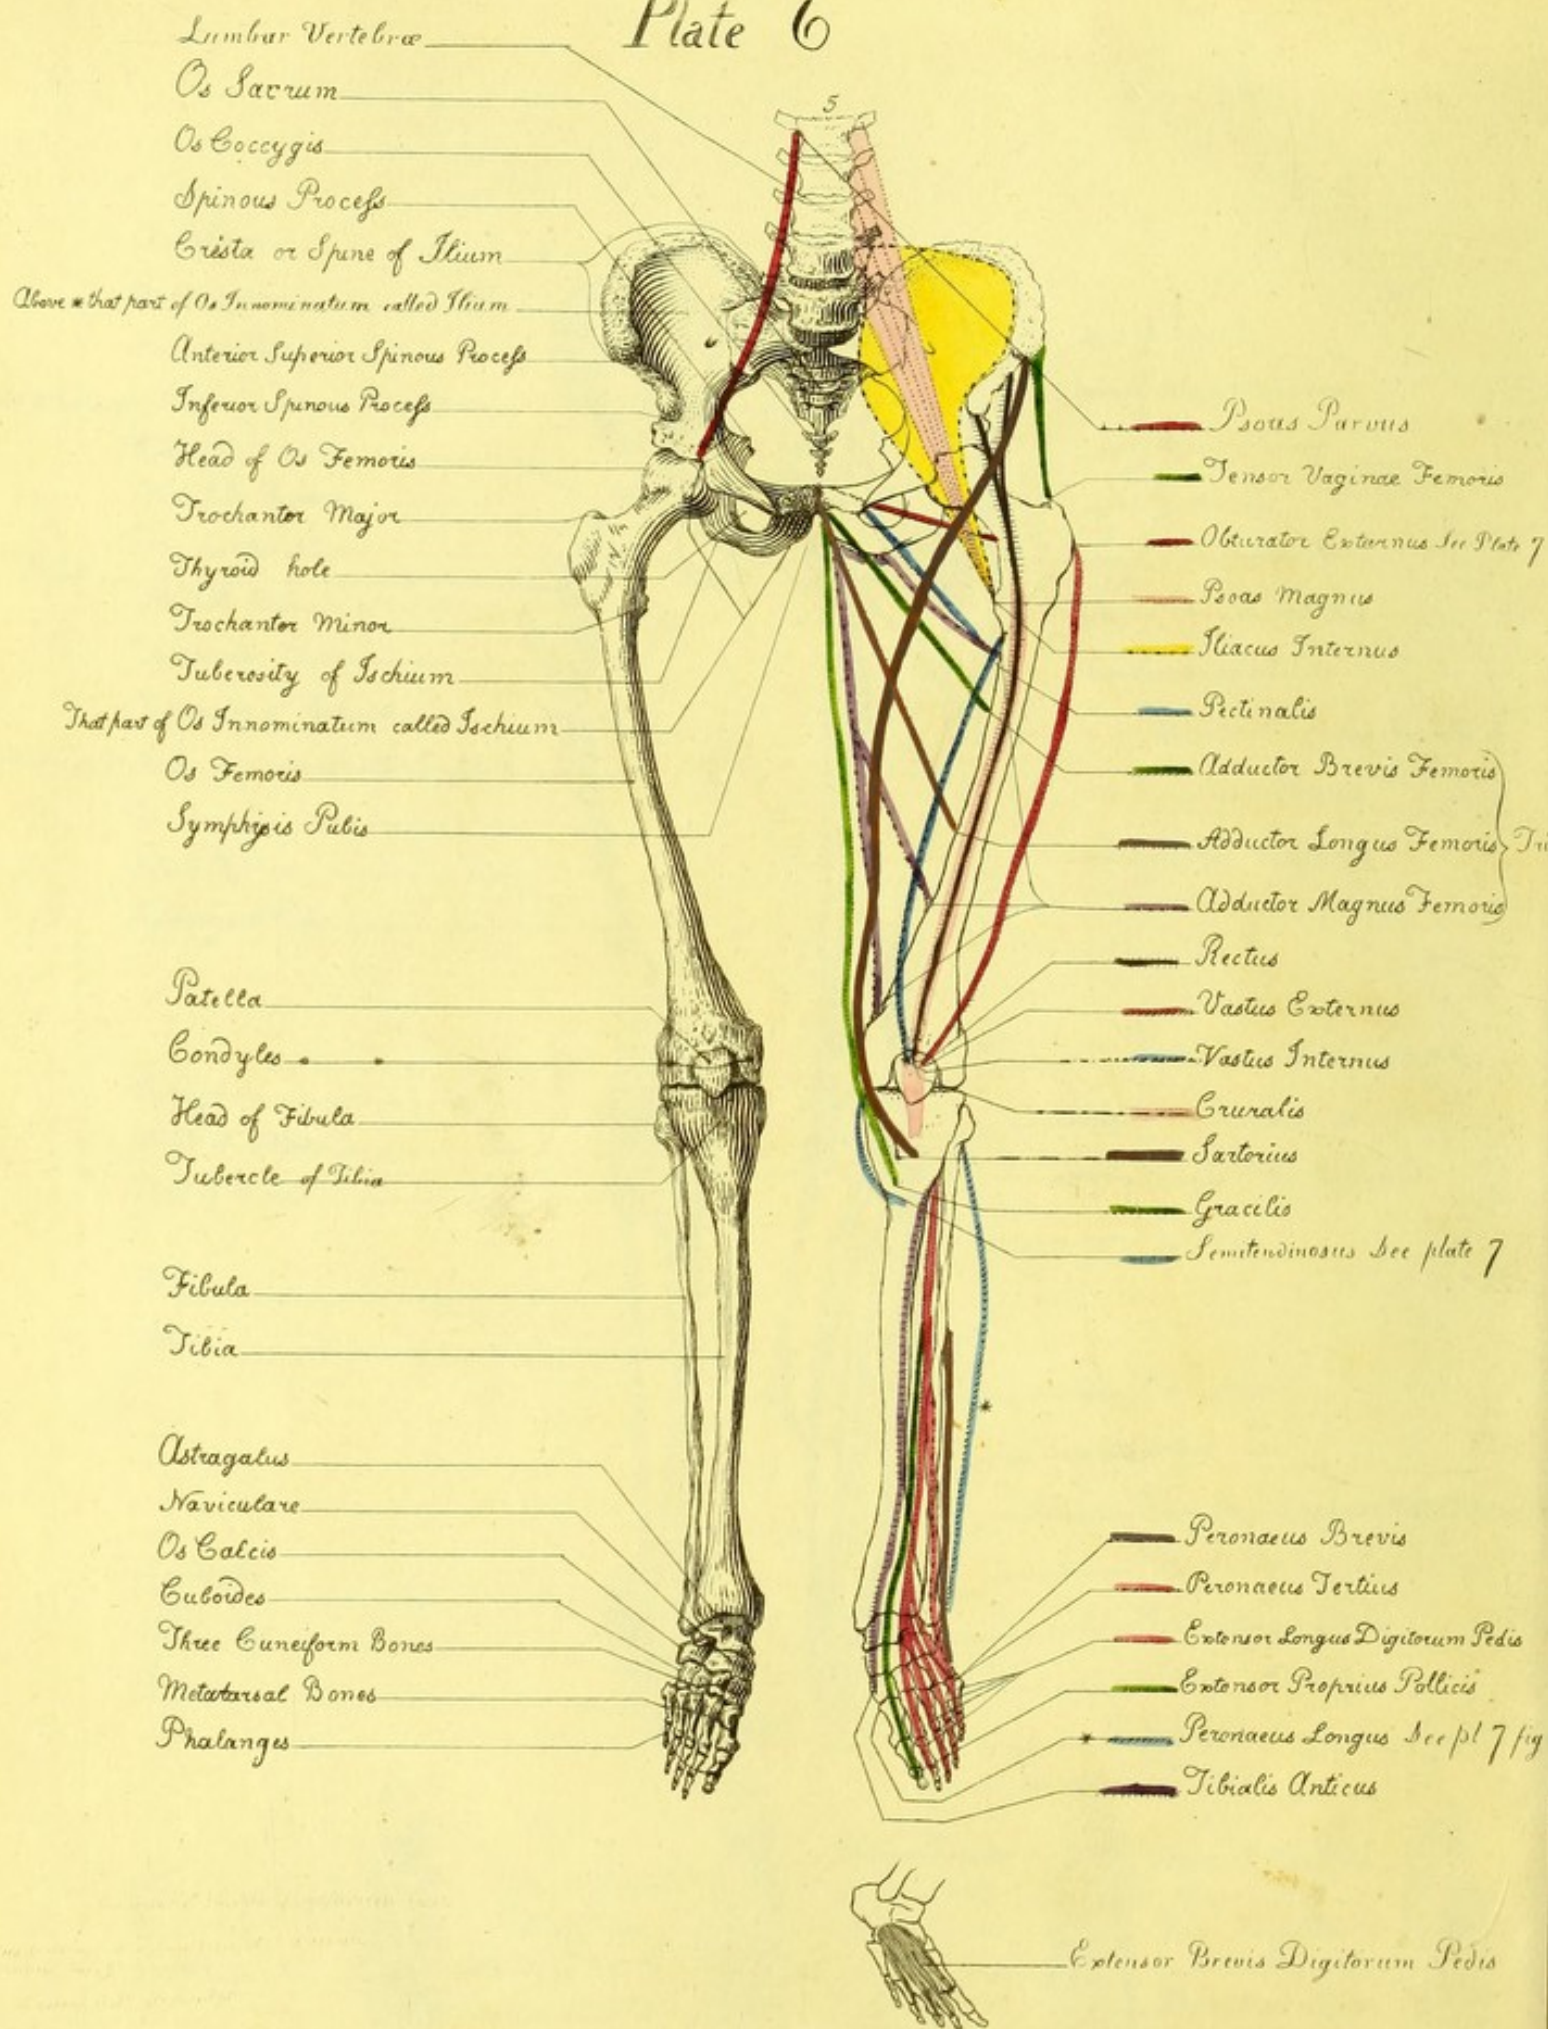 Plate 6
Lumbar Vertebræ
Os Sacrum
Os Coccygis
Spinous Proceſs
Crista or Spine of Ilium
Above * that part of Os Innominatum called Ilium
Anterior Superior Spinous Proceſs
Inferior Spinous Proceſs
Head of Os Femoris
Trochanter Major
Thyroid hole
Trochanter Minor
Tuberosity of Ischium
That part of Os Innominatum called Ischium
Os Femoris
Symphisis Pubis
Patella
Condyles
Head of Fibula
Tubercle of Tibia
Fibula
Tibia
Astragalus
Naviculare
Os Calcis
Cuboides
Three Cuneiform Bones
Metatarsal Bones
Phalanges
5
Psoas Parvus
Tensor Vaginae Femoris
Obturator Externus See Plate 7
Psoas Magnus
Iliacus Internus
Pectinalis
Adductor Brevis Femoris
Adductor Longus Femoris
Adductor Magnus Femoris
Rectus
Vastus Externus
Vastus Internus
Cruralis
Sartorius
Gracilis
Semitendinosus See plate 7
*
Peronaeus Brevis
Peronaeus Tertius
Extensor Longus Digitorum Pedis
Extensor Proprius Pollicis
* Peronaeus Longus See pl 7 fig
Tibialis Anticus
Extensor Brevis Digitorum Pedis